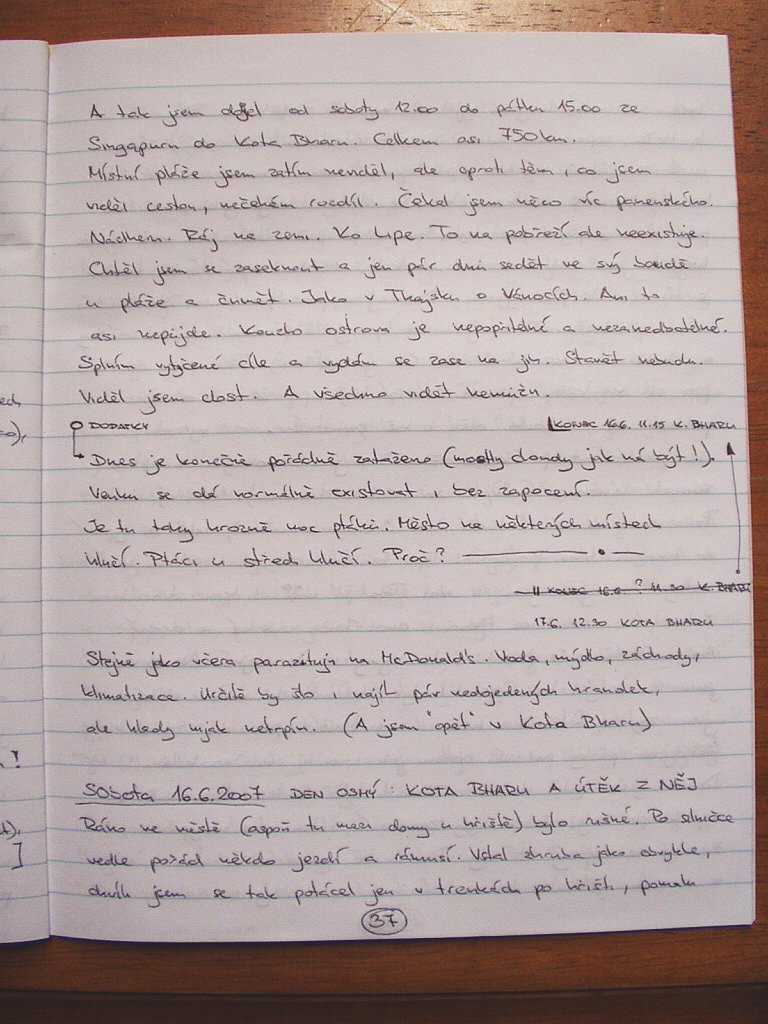 A tak jsem dojel od soboty 12.00 do pátku 15.00 ze
Singapuru do Kota Bharu. Celkem asi 750 km.
Místní pláže jsem zatím neviděl, ale oproti těm, co jsem
viděl cestou, nečekám rozdíl. Čekal jsem něco víc panenského.
Nádhern. Ráj na zemi. Ko Lipe. To na pobřeží ale neexistuje.
Chtěl jsem se zaseknout a jen pár dnů sedět ve svý boudě
u pláže a čumět. Jako v Thajsku o Vánocích. Ani to
asi nepůjde. Kouzlo ostrova je nepopiratelné a nezanedbatelné.
Splním vytyčené cíle a vydám se zase na jih. Stavět nebudu.
Viděl jsem dost. A všechno vidět nemůžu.
DODATKY
KONEC 16.6. 11.15 K. BHARU
Dnes je konečně pořádně zataženo (mostly cloudy jak má být!).
Venku se dá normálně existovat i bez zapocení.
Je tu taky hrozně moc ptáků. Město na některých místech
hlučí. Ptáci u střech hlučí. Proč?
KONEC 16.6 ? 11.30 K. BHARU
17.6. 12.30 KOTA BHARU
Stejně jako včera parazituju na McDonald's. Voda, mýdlo, záchody,
klimatizace. Určitě by šlo i najít pár nedojedených hranolek,
ale hlady nijak netrpím. (A jsem "opět" v Kota Bharu)
SOBOTA 16.6.2007 DEN OSMÝ: KOTA BHARU A ÚTĚK Z NĚJ
Ráno ve městě (aspoň tu mezi domy u hřiště) bylo rušné. Po silničce
vedle pořád někdo jezdí a rámusí. Vstal zhruba jako obvykle,
chvíli jsem se tak potácel jen v trenkách po hřišti, pomalu
37